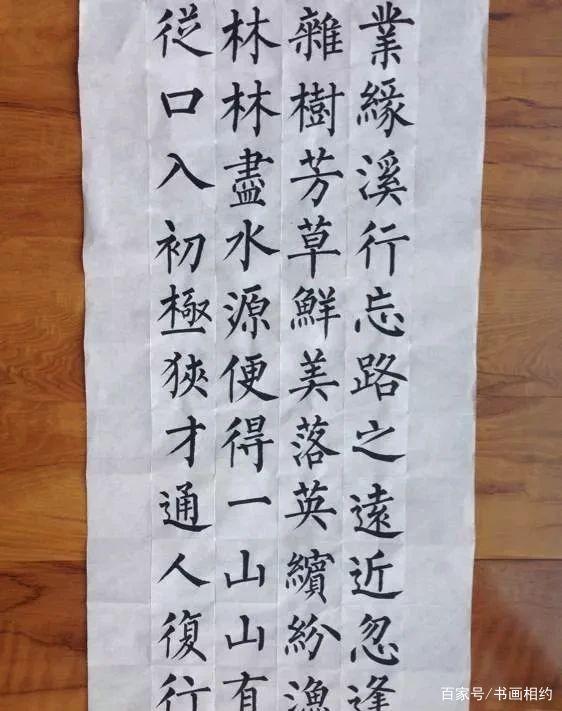 業緣溪行忘路之遠近忽逢
雜樹芳草鮮美落英繽紛漁
林林盡水源便得一山山有
從口入初極狹才通人復行
百家号/书画相约